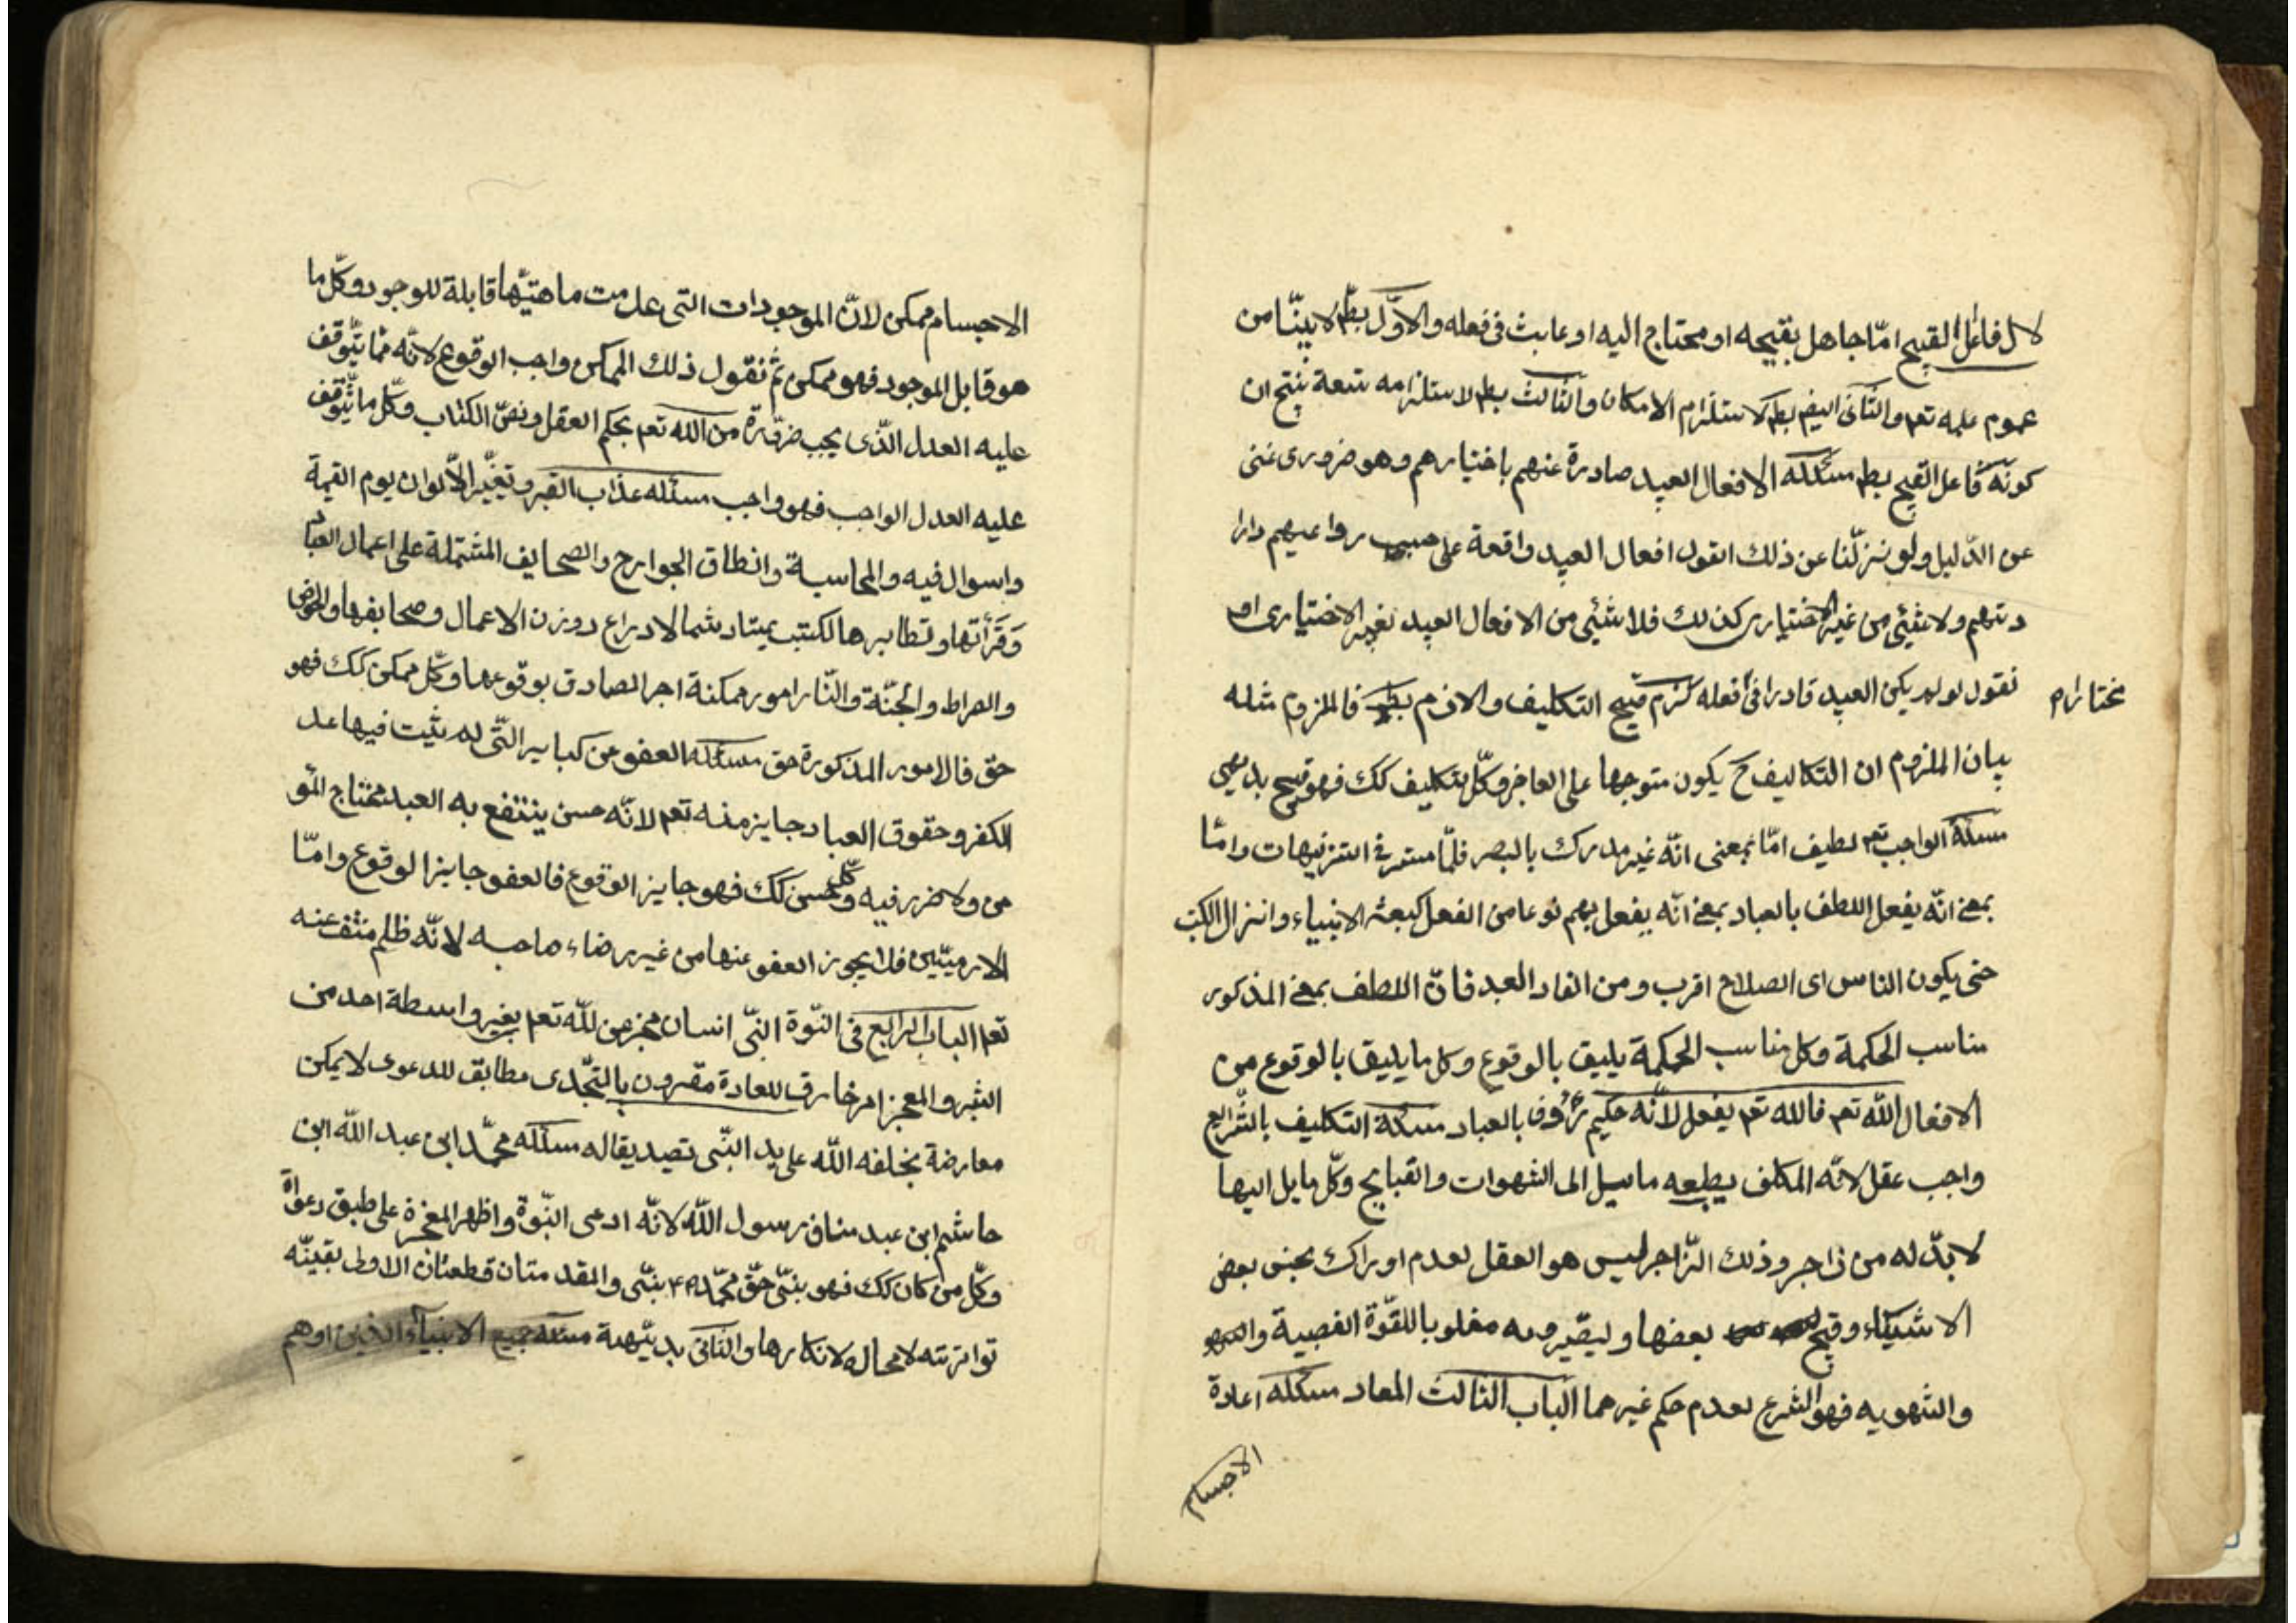 لان فاعل القبيح امّا جاهل بقبيحه او محتاج اليه او عابث فى فعله والاوّل بط لا بيّنّا من
عموم علمه تعم والثانى ايضم بط لاستلزام الامكان والثالث بط لاستلزامه تنتج ان
كونه فاعل القبيح بط مسئلة الافعال العبد صادرة عنهم باختيارهم وهو ضرورى غنى
عن الدّليل ولو نزلّنا عن ذلك انقول افعال العبد واقعة على حسب دواعيهم وارا
دتهم ولا شئى من غير الاختيارى كذلك فلا شئى من الافعال العبد بغير الاختيارى او
نقول لو لم يكن العبد قادرا فى أفعله لزم قبيح التكليف والازم بط فالملزوم مثله
مختارام
بيان الملزوم ان التكاليف ح يكون متوجها على العاجز وكلّ تكليف كك فهو قبيح بديهى
مسئلة الواجب تعم لطيف امّا بمعنى انّه غير مدرك بالبصر فلمّا مستر فى التنزيهات وامّا
بمعن انّه يفعل اللطف بالعباد بمعن انّه يفعل بهم نوعا من الفعل كبعثه الانبياء وانزال الكتب
حتى يكون الناس اى الصلاح اقرب ومن الفاد العبد فانّ اللطف بمعن المذكور
مناسب الحكمة وكل مناسب الحكمة يليق بالوقوع وكل ما يليق بالوقوع من
الافعال اللّه تعم فالله تعم يفعل لانّه حكيم رؤوف بالعباد مسئلة التكليف بالشّرايع
واجب عقل لانّه المكلف يطبعه مايل الى الشهوات والقبايح وكلّ مايل اليها
لا بدّ له من زاجر وذلك الزّاجر ليس هو العقل لعدم ادراك بحسن بعض
الاشيآء وقبح بعضها وليصّيروبه مغلوبا للقوّة الغصبية
والشهويه فهو الشرع لعدم حكم غيرهما الباب الثالث المعاد مسئله اعادة
الاجسام
الاجسام ممكن لانّ الموجودات التى علمت ماهيّتها قابلة للوجود وكلّ ما
هو قابل الموجود فهو ممكن ثم نقول ذلك الممكن واجب الوقوع لانّه ممّا يتّوقف
عليه العدل الّذى يجب ضرورة من اللّه تعم بحكم العقل ونصّ الكتاب وكلّ ما يتّوقف
عليه العدل الواجب فهو واجب مسئله عذاب القبر وتغيّر الألوان يوم القيمة
واسوال فيه والمحاسبة وانطاق الجوارح والصحايف المشتملة على اعمال العباد
وقرأتها وتطايرها لكتب ووزن الاعمال وصحايفها والحوض
والصراط والجنّة والنّار امور ممكنة اجر الصادق بوقوعها وكلّ ممكن كك فهو
حقّ فالامور المذكورة حق مسئلة العفو من كباير الّتى لم يثبت فيها عد
الكفر وحقوق العباد جايز منه تعم لانّه حسن ينتفع به العبد محتاج المؤ
من ولا ضرر فيه وكلّ حسن كك فهو جايز الوقوع فالعفو جايز الوقوع وامّا
الادميّين فلا يجوز العفو عنها من غير رضاء صاحبه لانّه ظلم منتف عنه
تعم الباب الرابع فى النّبوة النّبى انسان مخبر من للّه تعم بغير واسطة احد من
البشر والمعجز امر خارق للعادة مقرون بالتحّدى مطابق للدعوى لا يمكن
معارضة يخلقه اللّه على يد النّبى تصديقا له مسئله محمّد ابن عبد اللّه ابن
هاشم ابن عبد مناف رسول اللّه لانّه ادعى النّبوة واظهر المعجزة على طبق دعواه
وكلّ من كان كك فهو بنبّى حقّ محمّد بنبّى والمقدمتان قطعتان الاولى يقينّه
تواترته لا مجاله لانكارها والثانى بديّهية مسئله جميع الانبيآء الذين اوهم